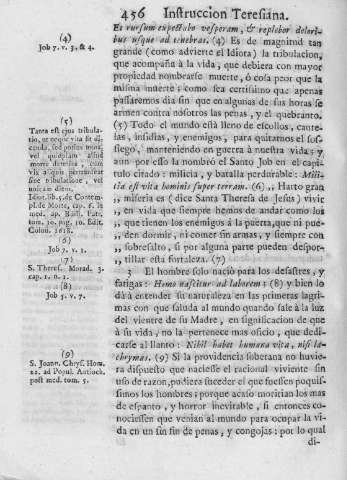 456 Instruccion Teresiana.
(4)
Job 7. v. 3. & 4.
(5)
Tanta est ejus tribulatio,
ut neque vita sit dicenda,
sed potius mora,
vel quidpiam aliud
morte
vix a quis permittatur
sine tribulatione, vel
unicam diem.
Idiot. lib. 5. de Contempl.
de Morte, cap. 6. in
med. ap. Bibli. Patr.
tom. 10. pag. 10. Edit.
Colon. 1618.
(6)
Job 7. v. 1.
(7)
S. Theres. Morad. 3.
cap. 1. n. 2.
(8)
Job 5. v. 7.
(9)
S. Joann. Chrys. Hom.
22. ad Popul. Antioch.
post med. tom. 5.
Et rursum expectabo vesperam, & replebor doloribus
usque ad tenebras. (4) Es de magnitud tan
grande (como advierte el Idiota) la tribulacion,
que acompaña à la vida, que debiera con mayor
propiedad nombrarse muerte, ó cosa peor que la
misma muerte; como sea certissimo que apenas
passarèmos dia sin que en algunas de sus horas se
armen contra nosotros las penas, y el quebranto.
(5) Todo el mundo està lleno de escollos, cautelas,
insidias, y enemigos, para quitarnos el sossiego,
manteniendo en guerra à nuestra vida; y
aun por esso la nombró el Santo Job en el capitulo
citado: milicia, y batalla perdurable: Militia
est vita hominis super terram. (6) ,, Harto gran
,, miseria es (dice Santa Theresa de Jesus) vivir
,, en vida que siempre hemos de andar como los
,, que tienen los enemigos à la puerta, que ni pueden
,, dormir, ni comer sin armas, y siempre con
,, sobresalto, si por alguna parte pueden desportillar
,, esta fortaleza. (7)
3 El hombre solo nació para los desastres, y
fatigas: Homo nascitur ad laborem: (8) y bien lo
dà à entender su naturaleza en las primeras lagrimas
con que saluda al mundo quando sale à la luz
del vientre de su Madre, en significacion de que
à su vida, no la pertenece mas oficio, que dedicarse
al llanto: Nihil habet humana vita, nisi lachrymas.
(9) Si la providencia soberana no huviera
dispuesto que naciesse el racional viviente sin
uso de razon, pudiera suceder el que fuessen poquissimos
los hombres; porque acaso moririan los mas
de espanto, y horror inevitable, si entonces conociessen
que venian al mundo para ocupar la vida
en un sin fin de penas, y congojas: por lo qual
di-